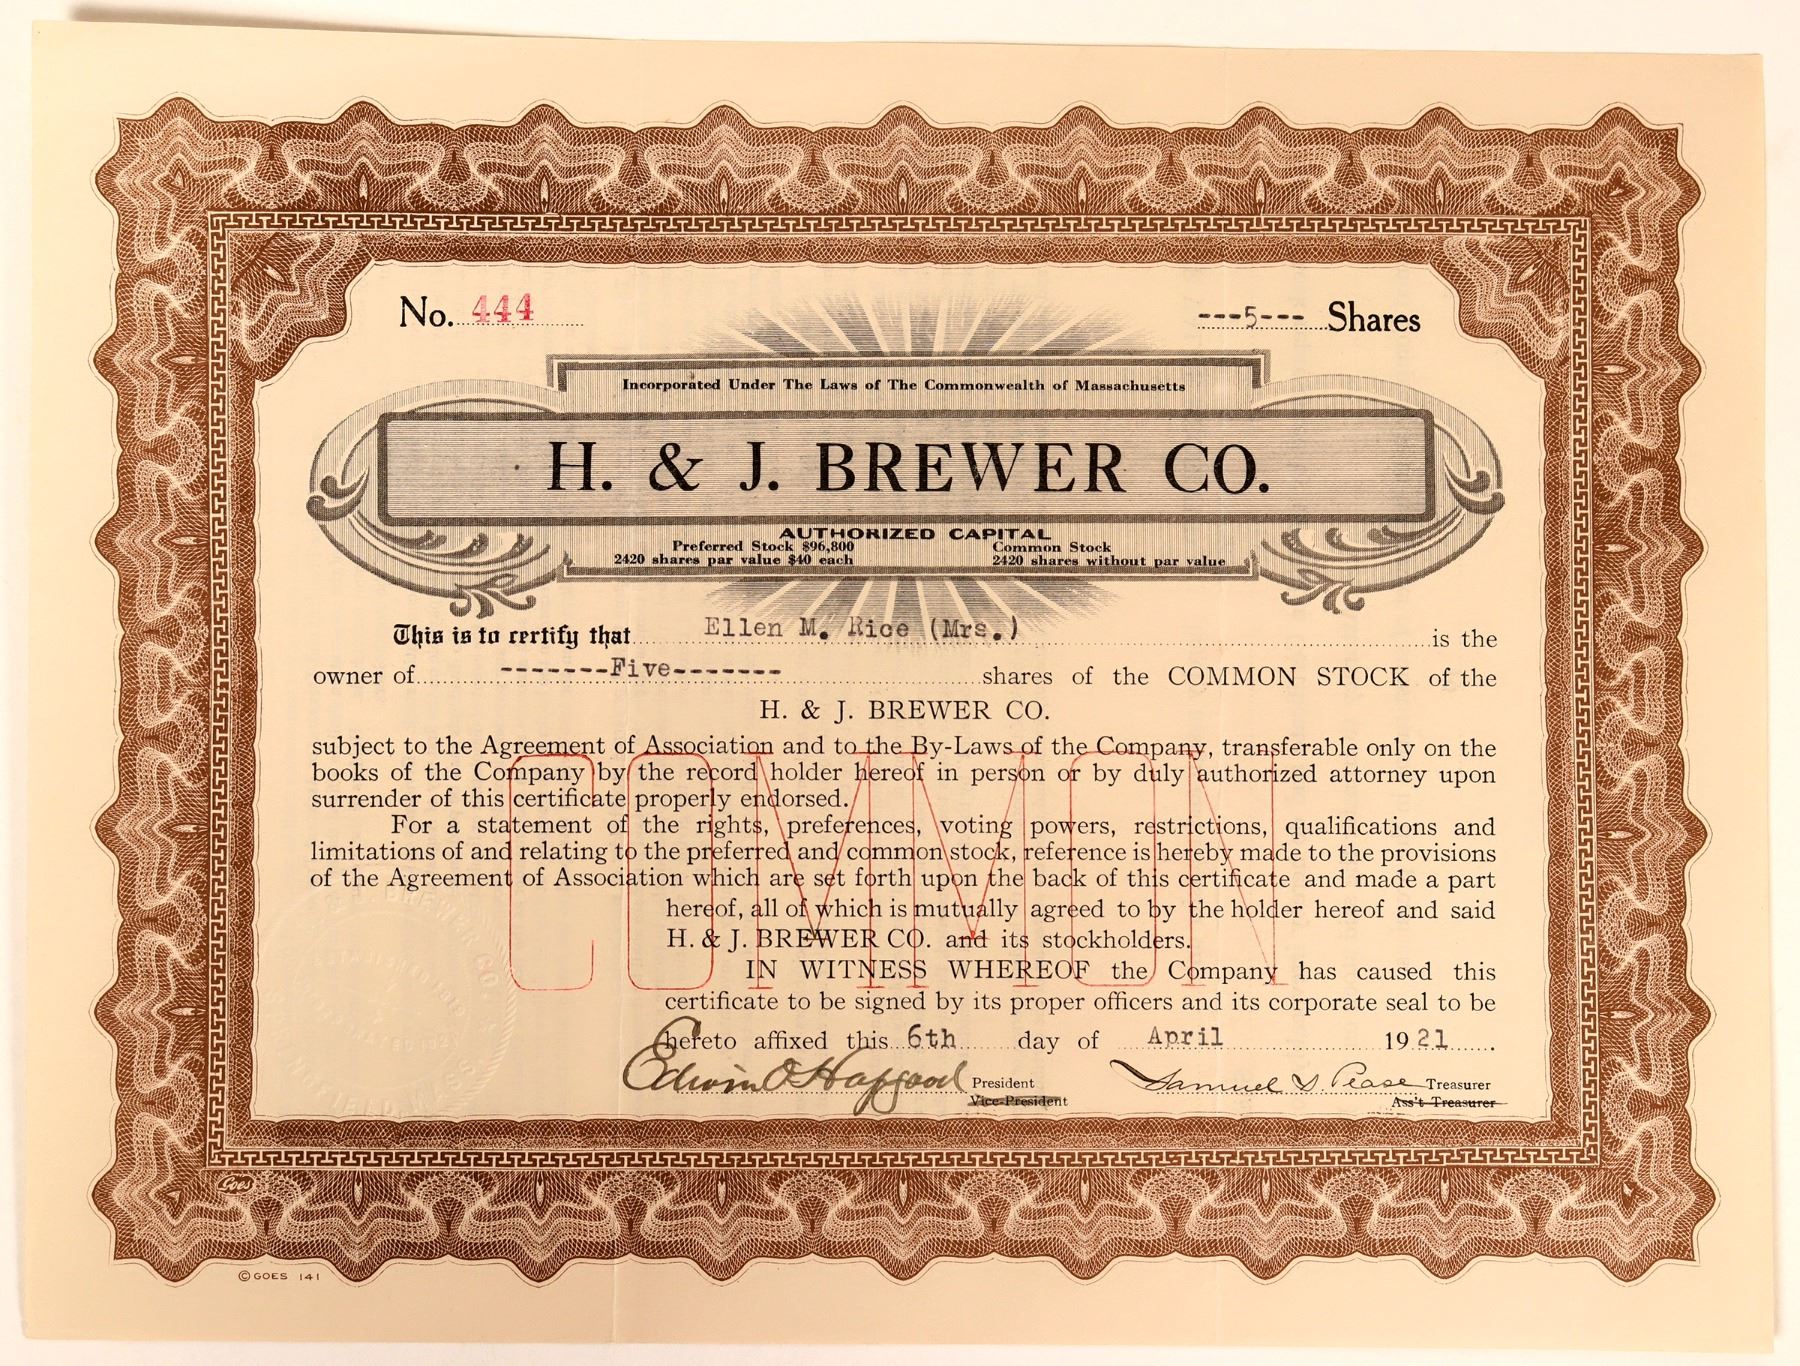 No. 444
---5--- Shares
Incorporated Under The Laws of The Commonwealth of Massachusetts
H. & J. BREWER CO.
AUTHORIZED CAPITAL
Preferred Stock $96,800
2420 shares par value $40 each
Common Stock
2420 shares without par value
This is to certify that Ellen M. Rice (Mrs.) is the
owner of -------Five------- shares of the COMMON STOCK of the
H. & J. BREWER CO.
subject to the Agreement of Association and to the By-Laws of the Company, transferable only on the
books of the Company by the record holder hereof in person or by duly authorized attorney upon
surrender of this certificate properly endorsed.
For a statement of the rights, preferences, voting powers, restrictions, qualifications and
limitations of and relating to the preferred and common stock, reference is hereby made to the provisions
of the Agreement of Association which are set forth upon the back of this certificate and made a part
hereof, all of which is mutually agreed to by the holder hereof and said
H. & J. BREWER CO. and its stockholders.
COMMON
IN WITNESS WHEREOF the Company has caused this
certificate to be signed by its proper officers and its corporate seal to be
hereto affixed this 6th day of April 1921
Edwin O Hapgood President
Vice-President
Samuel D. Pease Treasurer
Ass't Treasurer
J. BREWER CO.
MASS.
Goes
© GOES 141